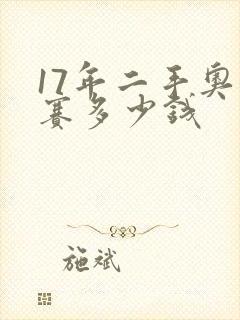 17年二手奥
赛多少钱
施斌